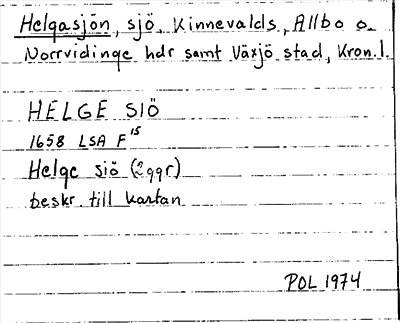 Helgasjön, sjö, Kinnevalds, Allbo o.
Norrvidinge hdr samt Växjö stad, Kron.l.
HELGE SIÖ
1658 LSA F 15
Helge siö (2ggr)
beskr. till kartan
POL 1974